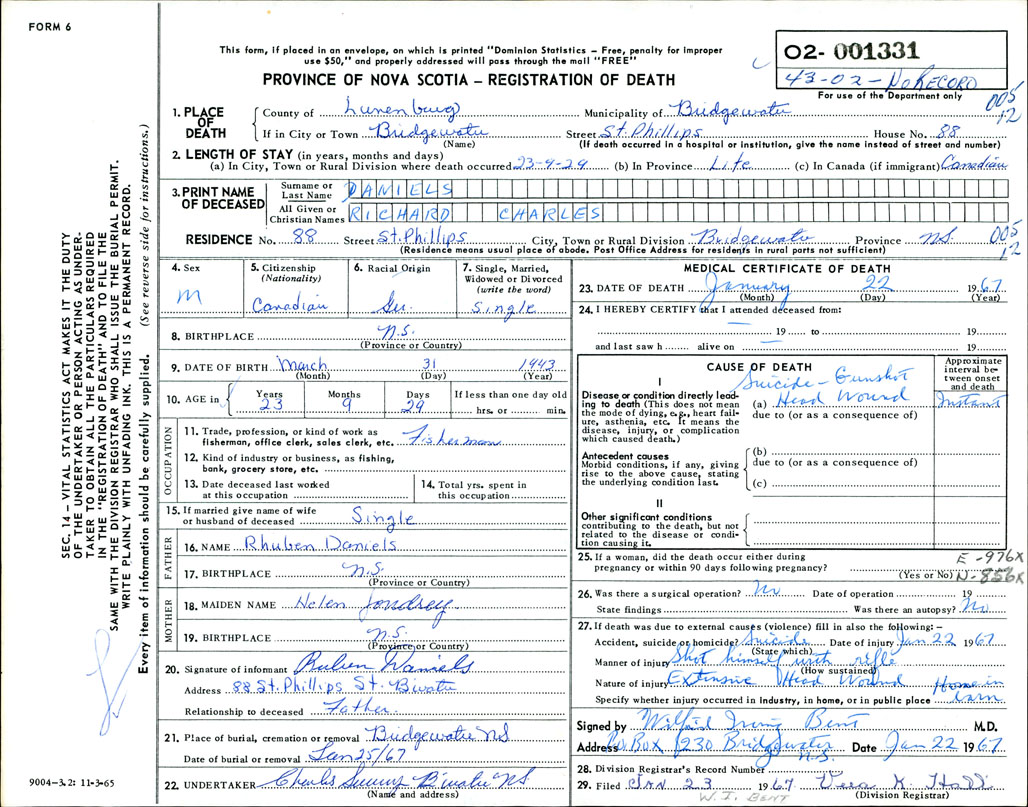 FORM 6
This form, if placed in an envelope, on which is printed "Dominion Statistics – Free, penalty for improper
use $50," and properly addressed will pass through the mail "FREE"
PROVINCE OF NOVA SCOTIA – REGISTRATION OF DEATH
02- 001331
43-02-NoRECORD
For use of the Department only
005
12
SEC. 14 – VITAL STATISTICS ACT MAKES IT THE DUTY
OF THE UNDERTAKER OR PERSON ACTING AS UNDER-
TAKER TO OBTAIN ALL THE PARTICULARS REQUIRED
IN THE "REGISTRATION OF DEATH" AND TO FILE THE
SAME WITH THE DIVISION REGISTRAR WHO SHALL ISSUE THE BURIAL PERMIT.
WRITE PLAINLY WITH UNFADING INK. THIS IS A PERMANENT RECORD.
Every item of information should be carefully supplied. (See reverse side for instructions.)
1. PLACE OF DEATH County of Lunenburg Municipality of Bridgewater
If in City or Town Bridgewater Street St. Phillips House No. 88
(Name) (If death occurred in a hospital or institution, give the name instead of street and number)
2. LENGTH OF STAY (in years, months and days)
(a) In City, Town or Rural Division where death occurred 23-9-29 (b) In Province Life (c) In Canada (if immigrant) Canadian
3. PRINT NAME OF DECEASED Surname or Last Name DANIELS
All Given or Christian Names RICHARD CHARLES
RESIDENCE No. 88 Street St. Phillips City, Town or Rural Division Bridgewater Province NS. 005
12
(Residence means usual place of abode. Post Office Address for residents in rural parts not sufficient)
4. Sex M
5. Citizenship (Nationality) Canadian
6. Racial Origin
7. Single, Married, Widowed or Divorced (write the word) Single
8. BIRTHPLACE N.S.
(Province or Country)
9. DATE OF BIRTH March 31 1943
(Month) (Day) (Year)
10. AGE in Years Months Days If less than one day old
23 9 29 hrs. or min.
OCCUPATION
11. Trade, profession, or kind of work as
fisherman, office clerk, sales clerk, etc. Fisherman
12. Kind of industry or business, as fishing,
bank, grocery store, etc.
13. Date deceased last worked
at this occupation
14. Total yrs. spent in
this occupation
15. If married give name of wife
or husband of deceased Single
FATHER
16. NAME Rhuben Daniels
17. BIRTHPLACE N.S.
(Province or Country)
MOTHER
18. MAIDEN NAME Helen Joudrey
19. BIRTHPLACE N.S.
(Province or Country)
20. Signature of informant Ruben Daniels
Address 88 St. Phillips St. Bwater
Relationship to deceased Father
21. Place of burial, cremation or removal Bridgewater NS
Date of burial or removal Jan 25/67
22. UNDERTAKER Charles B'water NS
(Name and address)
9004-3.2: 11-3-65
MEDICAL CERTIFICATE OF DEATH
23. DATE OF DEATH January 22 1967
(Month) (Day) (Year)
24. I HEREBY CERTIFY that I attended deceased from:
19 to 19
and last saw h alive on 19
CAUSE OF DEATH
Approximate interval between onset and death
I
Disease or condition directly lead-
ing to death (This does not mean
the mode of dying, e.g., heart fail-
ure, asthenia, etc. It means the
disease, injury, or complication
which caused death.)
Suicide - Gunshot
(a) Head Wound Instant
due to (or as a consequence of)
Antecedent causes
Morbid conditions, if any, giving
rise to the above cause, stating
the underlying condition last.
(b)
due to (or as a consequence of)
(c)
II
Other significant conditions
contributing to the death, but not
related to the disease or condi-
tion causing it.
25. If a woman, did the death occur either during
pregnancy or within 90 days following pregnancy?
(Yes or No)
E-976X
N-856X
26. Was there a surgical operation? No Date of operation 19
State findings Was there an autopsy? No
27. If death was due to external causes (violence) fill in also the following: –
Accident, suicide or homicide? Suicide Date of injury Jan 22 1967
(State which)
Manner of injury Shot himself with rifle
(How sustained)
Nature of injury Extensive Head Wound Home in
Specify whether injury occurred in industry, in home, or in public place barn
Signed by Wilfrid Irving Bent M.D.
Address Po Box 1230 Bridgewater N.S. Date Jan 22 1967
28. Division Registrar's Record Number
29. Filed JAN 23 1967 Vera K
(Division Registrar)
W. I. BENT